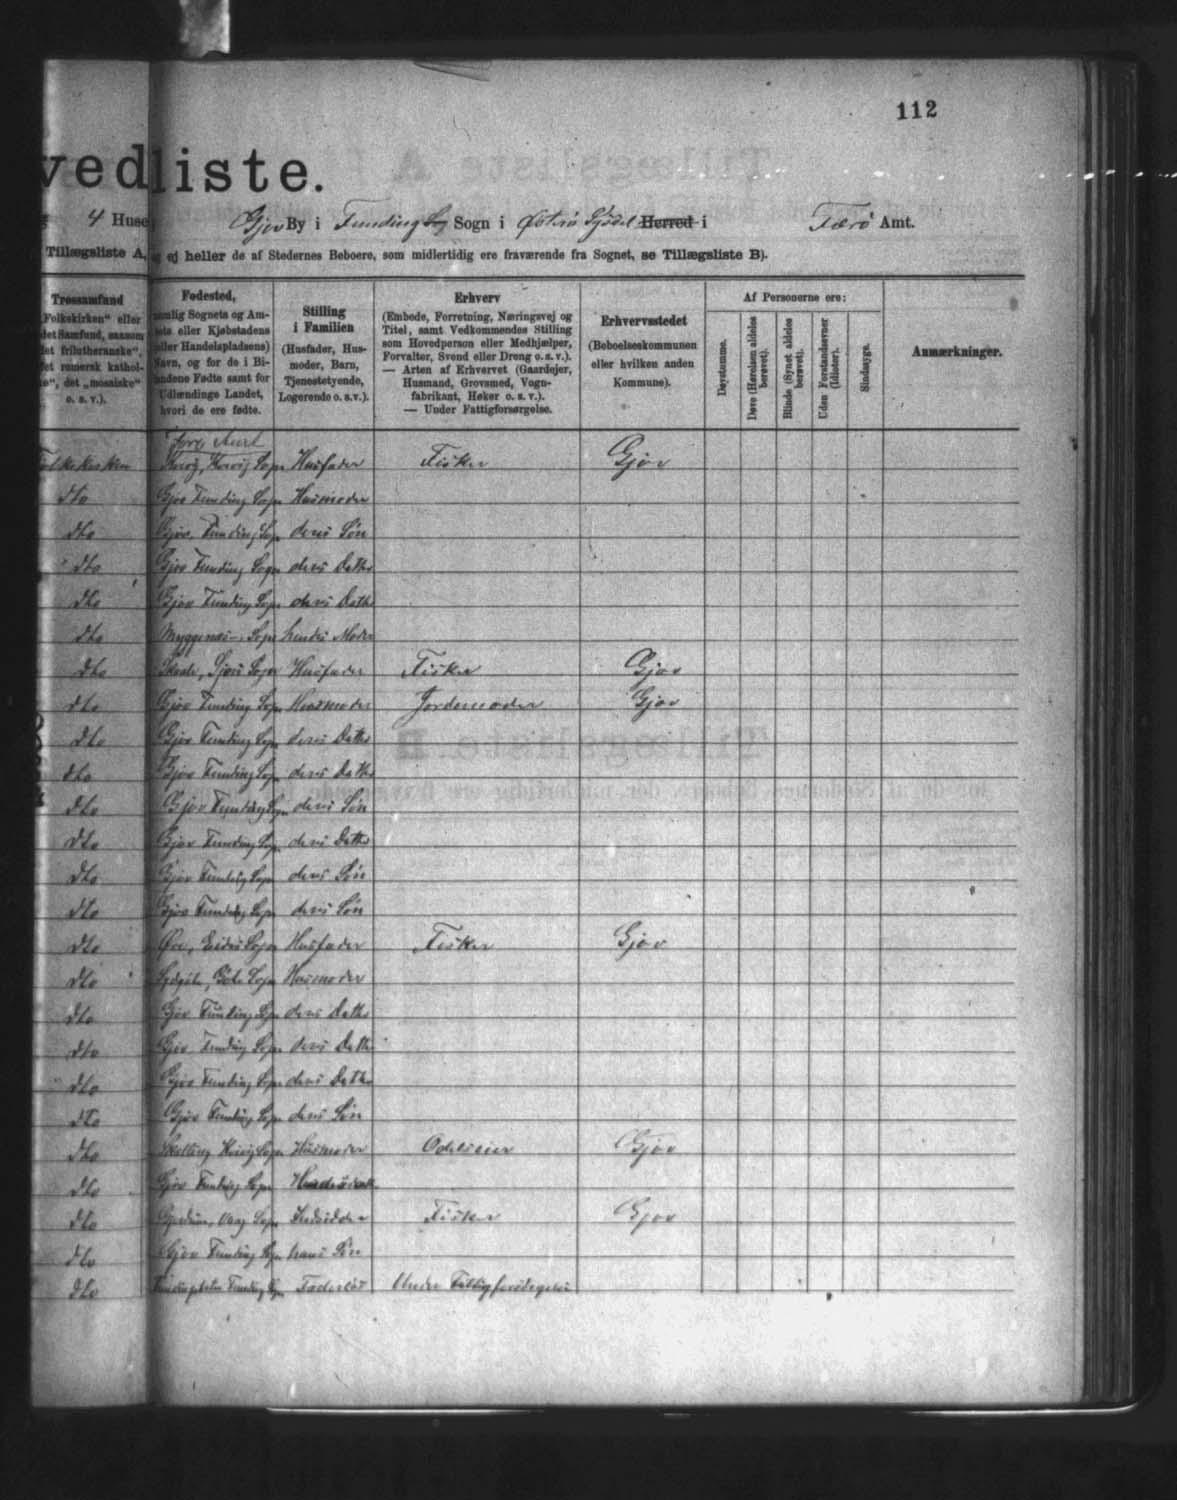 112
vedliste.
4 Huse Gjov By i Funding Sogn i Østerø Syssel Herred i Færø Amt.
Tillægsliste A, og ej heller de af Stedernes Beboere, som midlertidig ere fraværende fra Sognet, se Tillægsliste B).
Trossamfund
„Folkekirken“ eller
det Samfund, saasom
det frilutheranske“,
det romersk kathol-
, det „mosaiske“
o. s. v.).
Fødested,
nemlig Sognets og Am-
tets eller Kjøbstadens
(eller Handelspladsens)
Navn, og for de i Bi-
landene Fødte samt for
Udlændinge Landet,
hvori de ere fødte.
Stilling
i Familien
(Husfader, Hus-
moder, Barn,
Tjenestetyende,
Logerende o. s. v.).
Erhverv
(Embede, Forretning, Næringsvej og
Titel, samt Vedkommendes Stilling
som Hovedperson eller Medhjælper,
Forvalter, Svend eller Dreng o. s. v.).
— Arten af Erhvervet (Gaardejer,
Husmand, Grovsmed, Vogn-
fabrikant, Høker o. s. v.).
— Under Fattigforsørgelse.
Erhvervsstedet
(Beboelseskommunen
eller hvilken anden
Kommune).
Af Personerne ere:
Døvstumme.
Døve (Hørelsen aldeles berøvet).
Blinde (Synet aldeles berøvet).
Uden Forstandsevner (Idioter).
Sindssyge.
Anmærkninger.
Folkekirken Sogn Husfader Fisker Gjov
dto Gjov Funding Sogn Husmoder
dto Gjov, Funding Sogn deres Søn
dto Gjov Funding Sogn deres Datter
dto Gjov Funding Sogn deres Datter
dto Myggenæs Sogn hendes Moder
dto Skaale, Sogn Husfader Fisker Gjov
dto Gjov Funding Sogn Husmoder Jordemoder Gjov
dto Gjov Funding Sogn deres Datter
dto Gjov Funding Sogn deres Datter
dto Gjov Funding Sogn deres Søn
dto Gjov Funding Sogn deres Datter
dto Gjov Funding Sogn deres Søn
dto Gjov Funding Sogn deres Søn
dto Øre, Eides Sogn Husfader Fisker Gjov
dto Sogn Husmoder
dto Gjov Funding Sogn deres Datter
dto Gjov Funding Sogn deres Datter
dto Gjov Funding Sogn deres Datter
dto Gjov Funding Sogn deres Søn
dto Sogn Husmoder Odelseier Gjov
dto Gjov Funding Sogn
dto Sogn Fisker Gjov
dto Gjov Funding Sogn hans Søn
dto Funding Sogn Under Fattigforsørgelse